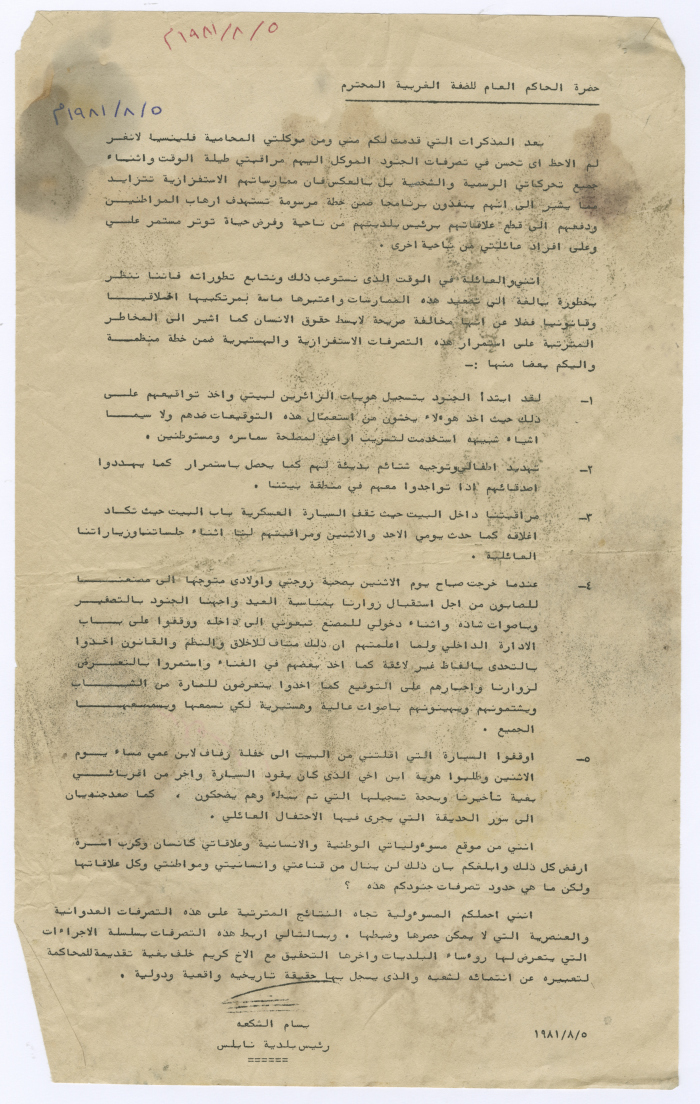 ١٩٨١/٨/٥م
حضرة الحاكم العام للضفة الغربية المحترم
١٩٨١/٨/٥م
بعد المذكرات التي قدمت لكم مني ومن موكلتي المحامية فلينسيا لانغر
لم الاحظ اى تحسن في تصرفات الجنود الموكل اليهم مراقبتي طيلة الوقت واثنــاء
جميع تحركاتي الرسمية والشخصية بل بالعكس فان ممارساتهم الاستفزازية تتزايد
مما يشير الى انهم ينفذون برنامجا ضمن خطة مرسومة تستهدف ارهاب المواطنيــن
ودفعهم الى قطع علاقاتهم برئيس بلديتهم من ناحية وفرض حياة توتر مستمر علــي
وعلى افراد عائلتي من ناحية اخرى .
انني والعائلة في الوقت الذى نستوعب ذلك ونتابع تطوراته فاننا ننظر
بخطورة بالغة الى تصعيد هذه الممارسات واعتبرها ماسة بمرتكبيها اخلاقيــا
وقانونيا فضلا عن انها مخالفة صريحة لابسط حقوق الانسان كما اشير الى المخاطر
المترتبة على استمرار هذه التصرفات الاستفزازية والهستيرية ضمن خطة منظمــة
واليكم بعضا منها :ـ
١ـ لقد ابتدأ الجنود بتسجيل هويات الزائرين لبيتي واخذ تواقيعهم علــى
ذلك حيث اخذ هوءلاء يخشون من استعمال هذه التوقيعات ضدهم ولا سيمــا
اشياء شبيهه استخدمت لتسريب اراضي لمصلحة سماسره ومستوطنين .
٢ـ تهديد اطفالي وتوجيه شتائم بذيئة لهم كما يحصل باستمرار كما يهــددوا
اصدقائهم اذا تواجدوا معهم في منطقة بيتنا .
٣ـ مراقبتنا داخل البيت حيث تقف السيارة العسكرية باب البيت حيث تكــاد
اغلاقه كما حدث يومي الاحد والاثنين ومراقبتهم لنا اثناء جلساتنا وزياراتنا
العائلية .
٤ـ عندما خرجت صباح يوم الاثنين بصحبة زوجتي واولادى متوجها الى مصنعنــا
للصابون من اجل استقبال زوارنا بمناسبة العيد واجهنا الجنود بالتصفير
وباصوات شاذه واثناء دخولي للمصنع تبعوني الى داخله ووقفوا على بــاب
الادارة الداخلي ولما اعلمتهم ان ذلك مناف للاخلاق والنظم والقانون اخذوا
بالتحدى بالفاظ غير لائقة كما اخذ بعضهم في الغناء واستمروا بالتعــرض
لزوارنا واجبارهم على التوقيع كما اخذوا يتعرضون للمارة من الشــاب
ويشتمونهم ويهينونهم باصوات عالية وهستيرية لكي نسمعها ويسمعهــا
الجميع .
٥ـ اوقفوا السيارة التي اقلتني من البيت الى حفلة زفاف لابن عمي مساء يــوم
الاثنين وطلبوا هوية ابن اخي الذى كان يقود السيارة واخر من اقربائــي
بغية تأخيرنا وبحجة تسجيلها التي تم ببطء وهم يضحكون . كما صعد جنديان
الى سور الحديقة التي يجرى فيها الاحتفال العائلي .
انني من موقع مسوءولياتي الوطنية والانسانية وعلاقاتي كانسان وكرب اسرة
ارفض كل ذلك وابلغكم بان ذلك لن ينال من قناعتي وانسانيتي ومواطنتي وكل علاقاتها
ولكن ما هي حدود تصرفات جنودكم هذه ؟
انني احملكم المسوءولية تجاه النتائج المترتبة على هذه التصرفات العدوانية
والعنصرية التي لا يمكن حصرها وضبطها . وبالتالي اربط هذه التصرفات بسلسلة الاجراءات
التي يتعرض لها روءساء البلديات واخرها التحقيق مع الاخ كريم خلف بغية تقديمة للمحاكمة
لتعبيره عن انتمائه لشعبه والذى يسجل بها حقيقة تاريخيه واقعية ودولية .
بسام الشكعه
١٩٨١/٨/٥
رئيس بلدية نابلس
======